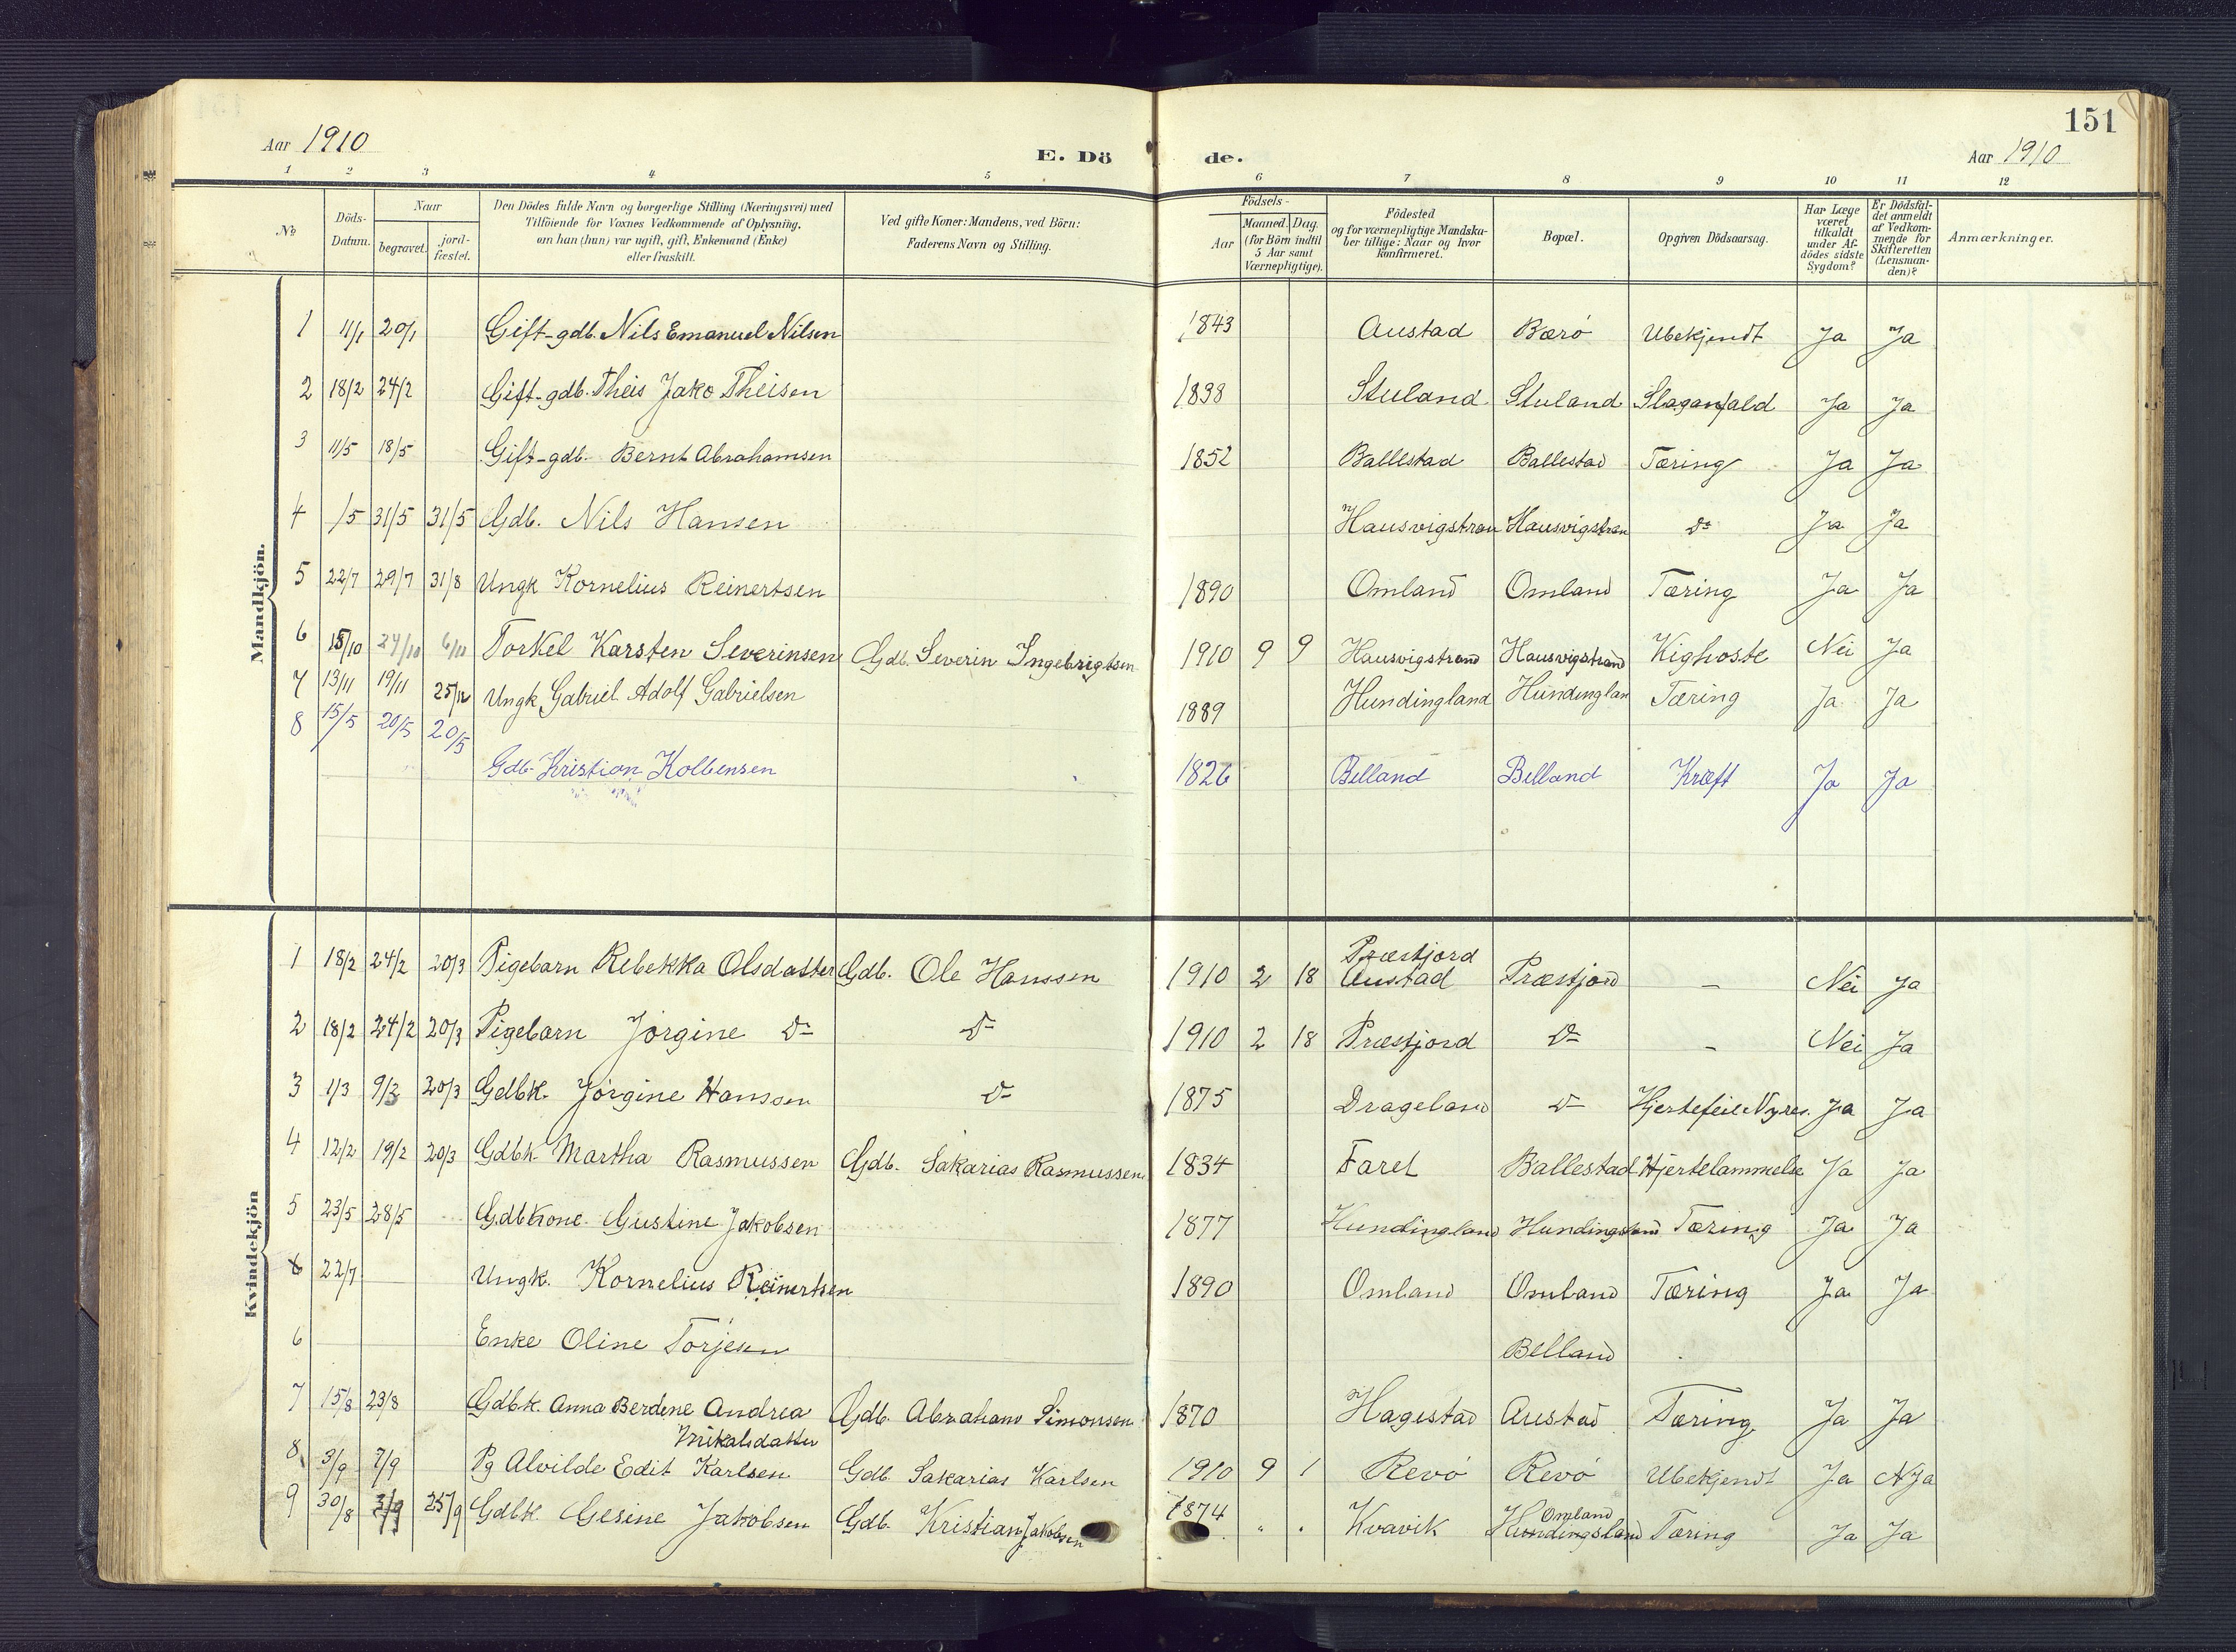 151
Aar 1910
E. Dö de.
Aar 1910
1 2 3 4 5 6 7 8 9 10 11 12
No
Döds-Datum.
Naar
begravet.
jord-fæstet.
Den Dödes fulde Navn og borgerlige Stilling (Næringsvei) med
Tilföiende for Voxnes Vedkommende af Oplysning,
om han (hun) var ugift, gift, Enkemand (Enke)
eller fraskilt.
Ved gifte Koner: Mandens, ved Börn:
Faderens Navn og Stilling.
Födsels-
Aar
Maaned. Dag.
(for Börn indtil
5 Aar samt
Værnepligtige).
Födested
og for værnepligtige Mandska-
ber tillige: Naar og hvor
konfirmeret.
Bopæl.
Opgiven Dödsaarsag.
Har Læge
været
tilkaldt
under Af-
dödes sidste
Sygdom?
Er Dödsfal-
det anmeldt
af Vedkom-
mende for
Skifteretten
(Lensman-
den)?
Anmærkninger.
Mandkjön.
1 11/1 20/1 Gift-gdb. Nils Emanuel Nilsen 1843 Austad Bærø Ubekjendt Ja Ja
2 18/2 24/2 Gift-gdb. Theis Jako Theisen 1838 Stuland Stuland Slaganfald Ja Ja
3 11/5 18/5 Gift-gdb. Bernt Abrahamsen 1852 Ballestad Ballestad Tæring Ja Ja
4 /5 31/5 31/5 Gdb. Nils Hansen Hausvigstran Hausvigstran Do Ja Ja
5 22/7 29/7 31/8 Ungk Kornelius Reinertsen 1890 Omland Omland Tæring Ja Ja
6 15/10 24/10 6/11 Torkel Karsten Severinsen Gdb. Severin Ingebrigtsen 1910 9 9 Hausvigstrand Hausvigstrand Kighoste Nei Ja
7 13/11 19/11 25/12 Ungk Gabriel Adolf Gabrielsen 1889 Hundingland Hundinglan Tæring Ja Ja
8 15/5 20/5 20/5 Gdb. Kristian Kolbensen 1826 Belland Belland Kræft Ja Ja
Kvindekjön
1 18/2 24/2 20/3 Pigebarn Rebekka Olsdatter Gdb. Ole Hanssen 1910 2 18 Præstjord Austad Præstjord - Nei Ja
2 18/2 24/2 20/3 Pigebarn Jørgine Do Do 1910 2 18 Præstjord Do - Nei Ja
3 1/3 9/3 20/3 Gdbk. Jørgine Hanssen Do 1875 Drageland Do Hjertefeil Nyres. Ja Ja
4 12/2 19/2 20/3 Gdbk Martha Rasmussen Gdb. Sakarias Rasmussen 1834 Faret Ballestad Hjertelammelse Ja Ja
5 23/5 28/5 Gdbkone Gustine Jakobsen 1877 Hundingland Hundingsland Tæring Ja Ja
6 22/7 Ungk. Kornelius Reinertsen 1890 Omland Omland Tæring Ja Ja
6 Enke Oline Torjesen Belland
7 15/8 23/8 Gdbk. Anna Berdine Andrea Gdb. Abraham Simonsen 1870 Hagestad Austad Tæring Ja Ja
8 3/9 7/9 Pg Alvilde Edit Karlsen Gdb. Sakarias Karlsen 1910 9 1 Revø Revø Ubekjendt Ja NJa
9 30/8 3/9 25/9 Gdbk. Gesine Jakobsen Gdb. Kristian Jakobsen 1874 " " Kvavik Omland Hundingsland Tæring Ja Ja